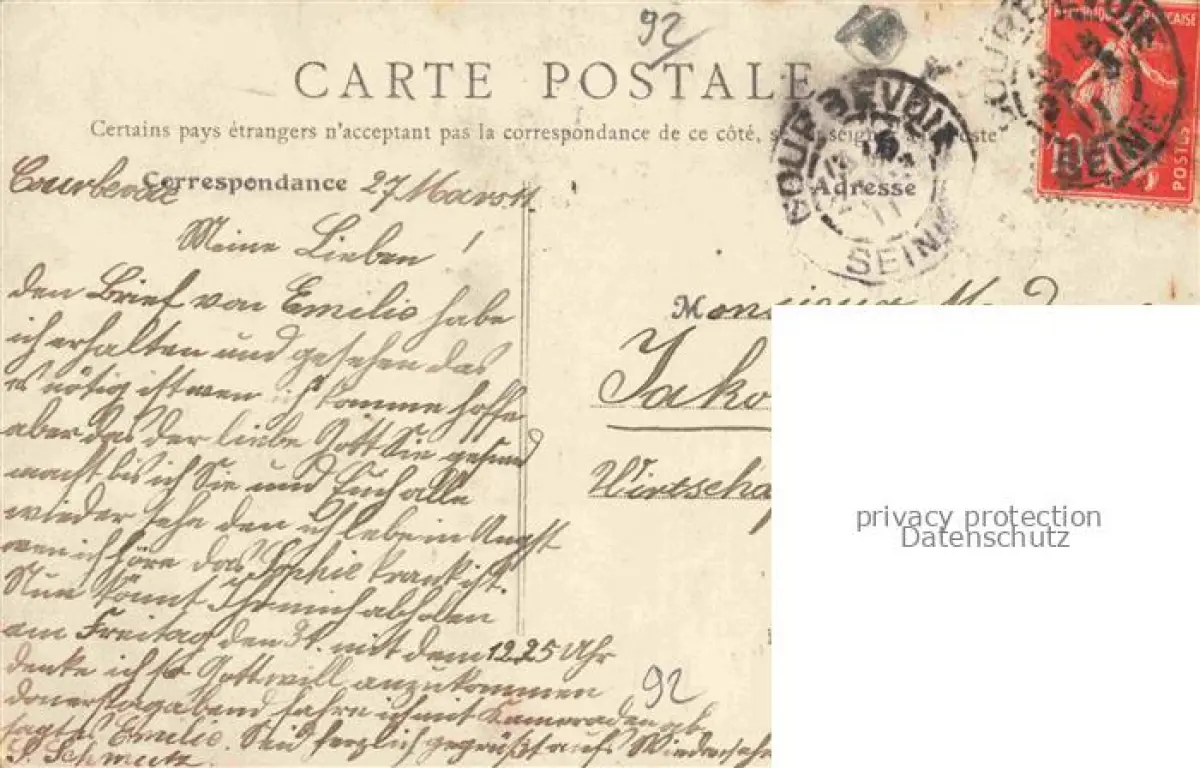 92
CARTE POSTALE
Certains pays étrangers n'acceptant pas la correspondance de ce côté, se
COURBEVOIE
SEINE
COURBEVOIE
SEINE
POSTES
10
Correspondance
Adresse
Courbevoie 27 Mars 11
Meine Lieben!
den Brief von Emilie habe
ich erhalten und gesehen das
es nötig ist wen ich komme hoffe
aber das der liebe Gott Sie gesund
macht bis ich Sie und Euch alle
wieder sehe den ich lebe in Angst
wen ich höre das Sophie krank ist.
Nun könnt Ihr mich abholen
am Freitag den 31. mit dem 12 25 Uhr
denke ich so Gott will anzukommen
donerstagabend fahre ich mit Kameraden
sagt es Emilie. Seid herzlich gegrüßt aufs Wiedersehn
S. Schmutz.
Jako
Wirtscha
92
privacy protection
Datenschutz